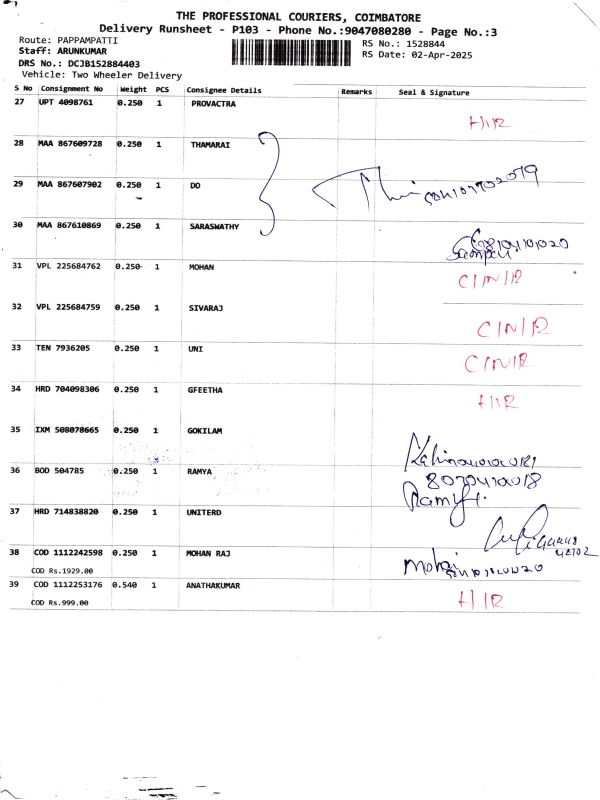 THE PROFESSIONAL COURIERS, COIMBATORE
Delivery Runsheet - P103 - Phone No.:9047080280 - Page No.:3
Route: PAPPAMPATTI
RS No.: 1528844
Staff: ARUNKUMAR
RS Date: 02-Apr-2025
DRS No.: DCJB152884403
Vehicle: Two Wheeler Delivery
S No Consignment No Weight PCS Consignee Details Remarks Seal & Signature
27 UPT 4098761 0.250 1 PROVACTRA
28 MAA 867609728 0.250 1 THAMARAI
29 MAA 867607902 0.250 1 DO
30 MAA 867610869 0.250 1 SARASWATHY
31 VPL 225684762 0.250 1 MOHAN C/N/R
32 VPL 225684759 0.250 1 SIVARAJ C/N/R
33 TEN 7936205 0.250 1 UNI C/N/R
34 HRD 704098306 0.250 1 GFEETHA
35 IXM 508078665 0.250 1 GOKILAM
36 BOD 504785 0.250 1 RAMYA Ramya
37 HRD 714838820 0.250 1 UNITERD
38 COD 1112242598 0.250 1 MOHAN RAJ
COD Rs.1929.00
39 COD 1112253176 0.540 1 ANATHAKUMAR
COD Rs.999.00